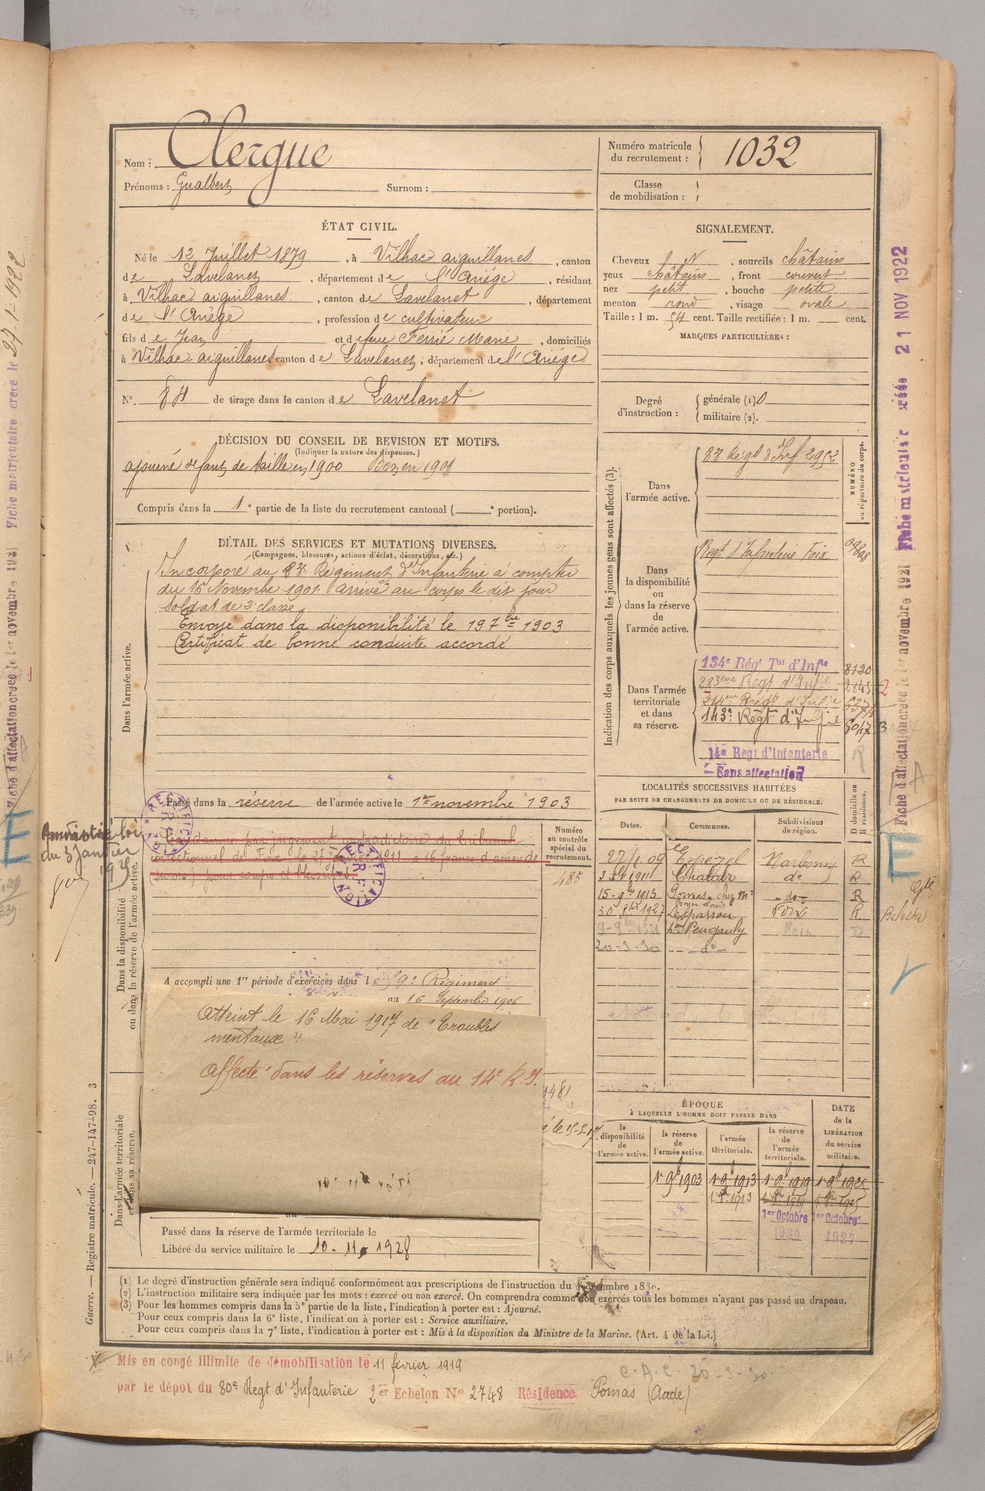 Nom : Clergue
Prénoms : Gualbert Surnom :
Numéro matricule du recrutement : 1032
Classe de mobilisation :
ÉTAT CIVIL.
Né le 12 Juillet 1879, à Vilhac aiguillanes, canton
de Lavelanet, département de l'Ariège, résidant
à Vilhac aiguillanes, canton de Lavelanet, département
de l'Ariège, profession de cultivateur
fils de Jean et de feue Ferrié Marie, domiciliés
à Vilhac aiguillanes canton de Lavelanet, département de l'Ariège
N°. 84 de tirage dans le canton de Lavelanet
SIGNALEMENT.
Cheveux N, sourcils châtains
yeux châtains, front couvert
nez petit, bouche petite
menton rond, visage ovale
Taille : 1 m. 54 cent. Taille rectifiée : 1 m. cent.
MARQUES PARTICULIÈRES :
Degré d'instruction : générale (1) 0
militaire (2).
DÉCISION DU CONSEIL DE REVISION ET MOTIFS.
(Indiquer la nature des dispenses.)
ajourné défaut de taille en 1900 Bon en 1901
Compris dans la 1e partie de la liste du recrutement cantonal ( e portion).
DÉTAIL DES SERVICES ET MUTATIONS DIVERSES.
(Campagnes, blessures, actions d'éclat, décorations, etc.)
Dans l'armée active.
Incorporé au Régiment d'Infanterie à compter
du 16 Novembre 1901 arrivé au corps le dit jour
Soldat de 2e classe
Envoyé dans la disponibilité le 19 7bre 1903
Certificat de bonne conduite accordé
Passé dans la réserve de l'armée active le 1er novembre 1903
RECTIFICATION
Amnistié loi
du 3 Janvier
1925
Condamné par jugement contradictoire du Tribunal
correctionnel de Foix le 1911 à 16 francs d'amende
pour coups et blessures
Numéro au contrôle spécial du recrutement.
485
Dans la disponibilité ou dans la réserve de l'armée active.
A accompli une 1re période d'exercices dans le Régiment
au 16 Septembre 1906
Atteint le 16 Mai 1917 de "Troubles
mentaux"
Affecté dans les réserves du 14e R.I.
Dans l'armée territoriale et dans sa réserve.
Passé dans la réserve de l'armée territoriale le
Libéré du service militaire le 10-11-1928
Indication des corps auxquels les jeunes gens sont affectés (3).
NUMÉRO au répertoire du corps.
Dans l'armée active.
Régt d'Inf 2952
Dans la disponibilité ou dans la réserve de l'armée active.
Regt d'Infanterie Foix
Dans l'armée territoriale et dans sa réserve.
134e Régt Tal d'Infie 8120
Régt d'Infie
Régt d'Infie
143e Régt d'Infie
14e Regt d'Infanterie
Sans affectation
LOCALITÉS SUCCESSIVES HABITÉES
PAR SUITE DE CHANGEMENTS DE DOMICILE OU DE RÉSIDENCE.
Dates. Communes. Subdivisions de région. D domicile ou R résidence.
27/1 09 Espezel Narbonne R
Chalabre do R
15-9bre 1913 Pomas chez Mr do R
30 8bre 1927 Lesparrou Foix R
Peugauly Foix D
20-3-30 do
ÉPOQUE
À LAQUELLE L'HOMME DOIT PASSER DANS
la disponibilité de l'armée active.
la réserve de l'armée active.
l'armée territoriale.
la réserve de l'armée territoriale.
DATE de la LIBÉRATION du service militaire.
1er 9b 1903 1er 9b 1913 1er 9b 1919 1er 9b 1925
1er Octobre 1er Octobre
(1) Le degré d'instruction générale sera indiqué conformément aux prescriptions de l'instruction du
(2) L'instruction militaire sera indiquée par les mots : exercé ou non exercé. On comprendra comme non exercés tous les hommes n'ayant pas passé au drapeau.
(3) Pour les hommes compris dans la 5e partie de la liste, l'indication à porter est : Ajourné.
Pour ceux compris dans la 6e liste, l'indication à porter est : Service auxiliaire.
Pour ceux compris dans la 7e liste, l'indication à porter est : Mis à la disposition du Ministre de la Marine. (Art. 4 de la loi.)
Mis en congé illimité de démobilisation le 11 février 1919
par le dépôt du 80e Regt d'Infanterie 2er Echelon No 2748 Résidence Pomas (Aude)
C.A.C. 20-3-30
Guerre. — Registre matricule. — 247-147-98. 3
Fiche matriculaire créée 21 NOV 1922
Fiche d'affectation créée le 1er novembre 1921
Fiche d'affectation créée le 1er novembre 1921 Fiche matriculaire créée le 27-1-1922